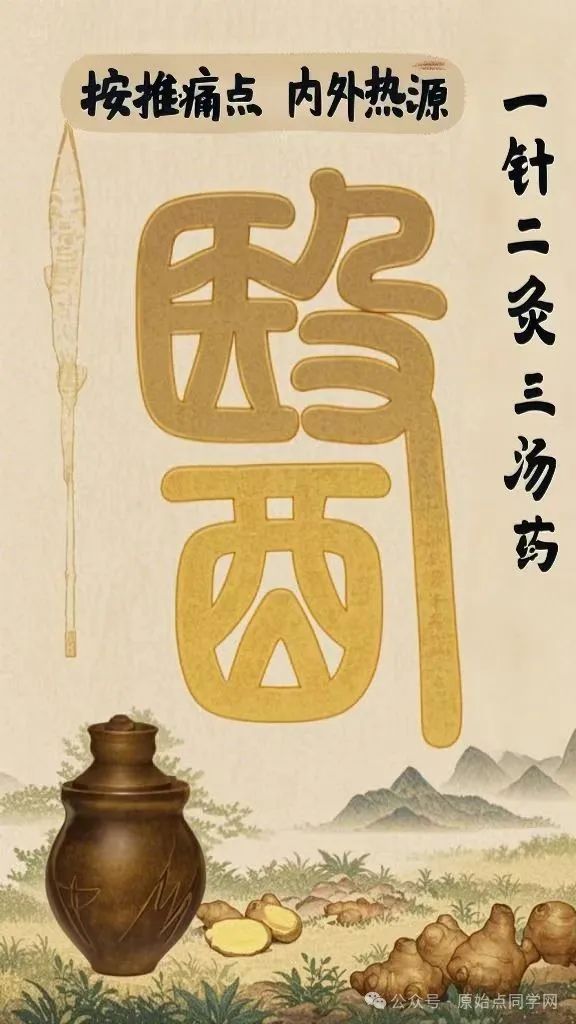 按推痛点 内外热源
一针二灸三汤药
醫
公众号 · 原始点同学网